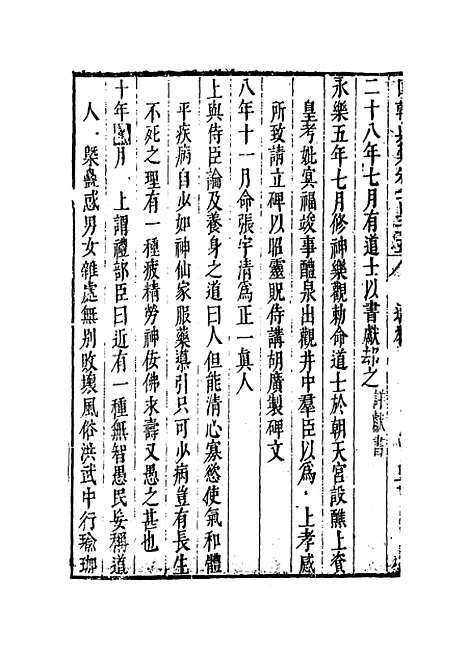 二十八年七月有道士以書獻却之詳獻書
永樂五年七月修神樂觀勅命道士於朝天宮設醮上資
皇考妣㝠福竣事醴泉出觀井中羣臣以爲上孝感
所致請立碑以昭靈貺侍講胡廣製碑文
八年十一月命張宇清爲正一真人
上與侍臣論及養身之道曰人但能清心寡慾使氣和體
平疾病自少如神仙家服藥導引只可少病豈有長生
不死之理有一種疲精勞神佞佛求壽又愚之甚也
十年月上謂禮部臣曰近有一種無智愚民妄稱道
人槩蠱惑男女雜處無別敗壞風俗洪武中行瑜珈